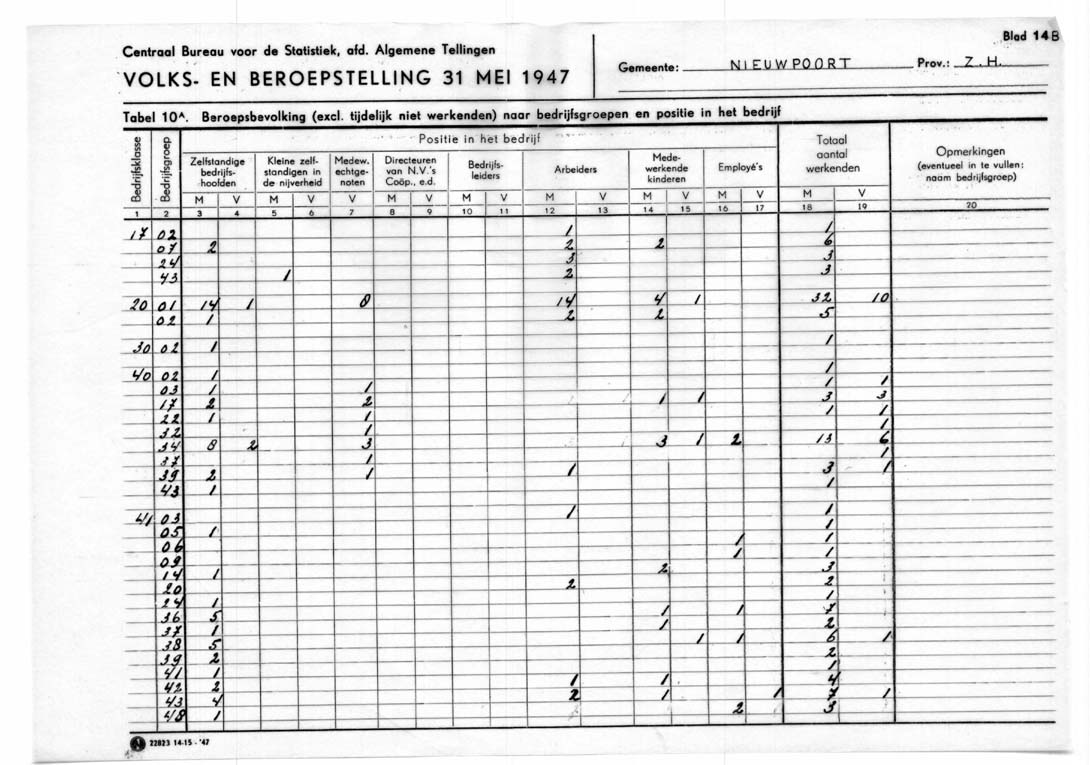 Blad 14B
Centraal Bureau voor de Statistiek, afd. Algemene Tellingen
VOLKS- EN BEROEPSTELLING 31 MEI 1947
Gemeente: NIEUWPOORT Prov.: Z.H.
Tabel 10A. Beroepsbevolking (excl. tijdelijk niet werkenden) naar bedrijfsgroepen en positie in het bedrijf
Bedrijfsklasse
Bedrijfsgroep
Positie in het bedrijf
Zelfstandige bedrijfs- hoofden
Kleine zelf- standigen in de nijverheid
Medew. echtge- noten
Directeuren van N.V.'s Coöp., e.d.
Bedrijfs- leiders
Arbeiders
Mede- werkende kinderen
Employé's
Totaal aantal werkenden
Opmerkingen (eventueel in te vullen: naam bedrijfsgroep)
M V M V V M V M V M V M V M V M V
1 2 3 4 5 6 7 8 9 10 11 12 13 14 15 16 17 18 19 20
17 02 1 1
07 2 2 2 6
24 3 3
43 1 2 3
20 01 14 1 8 14 4 1 32 10
02 1 2 2 5
30 02 1 1
40 02 1 1
03 1 1 1 1
17 2 2 1 1 3 3
22 1 1 1 1
32 1 1
34 8 2 3 3 1 2 13 6
37 1 1
39 2 1 1 3 1
43 1 1
41 03 1 1
05 1 1
06 1 1
09 1 1
14 1 2 3
20 2 2
24 1 1
36 5 1 1 7
37 1 1 2
38 5 1 1 6 1
39 2 2
41 1 1
42 2 1 1 4
43 4 2 1 1 7 1
48 1 2 3
N 22823 14-15 - '47